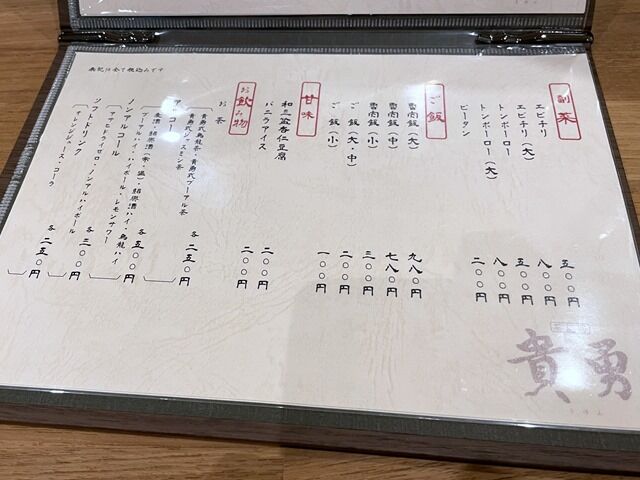 副菜
エビチリ 五〇〇円
エビチリ(大) 八〇〇円
トンポーロー 五〇〇円
トンポーロー(大) 八〇〇円
ピータン 二〇〇円
ご飯
魯壱飯(大) 九八〇円
魯壱飯(中) 七八〇円
魯壱飯(小) 三〇〇円
ご飯(大・中) 二〇〇円
ご飯(小) 一〇〇円
甘味
和三盆杏仁豆腐 二〇〇円
バニラアイス 二〇〇円
お飲み物
お茶
貴勇式烏龍茶・貴勇式プーアル茶
貴勇式ジャスミン茶 各二五〇円
アルコール
麦酒・紹興酒(常・温)紹興酒ハイ・烏龍ハイ
プーアル・ハイ・ハイボール・レモンサワー 各五〇〇円
ノンアルコール
アサヒドライゼロ・ノンアルハイボール 各三〇〇円
ソフトドリンク
オレンジジュース・コーラ 各二五〇円
表記は全て税込みです
貴勇